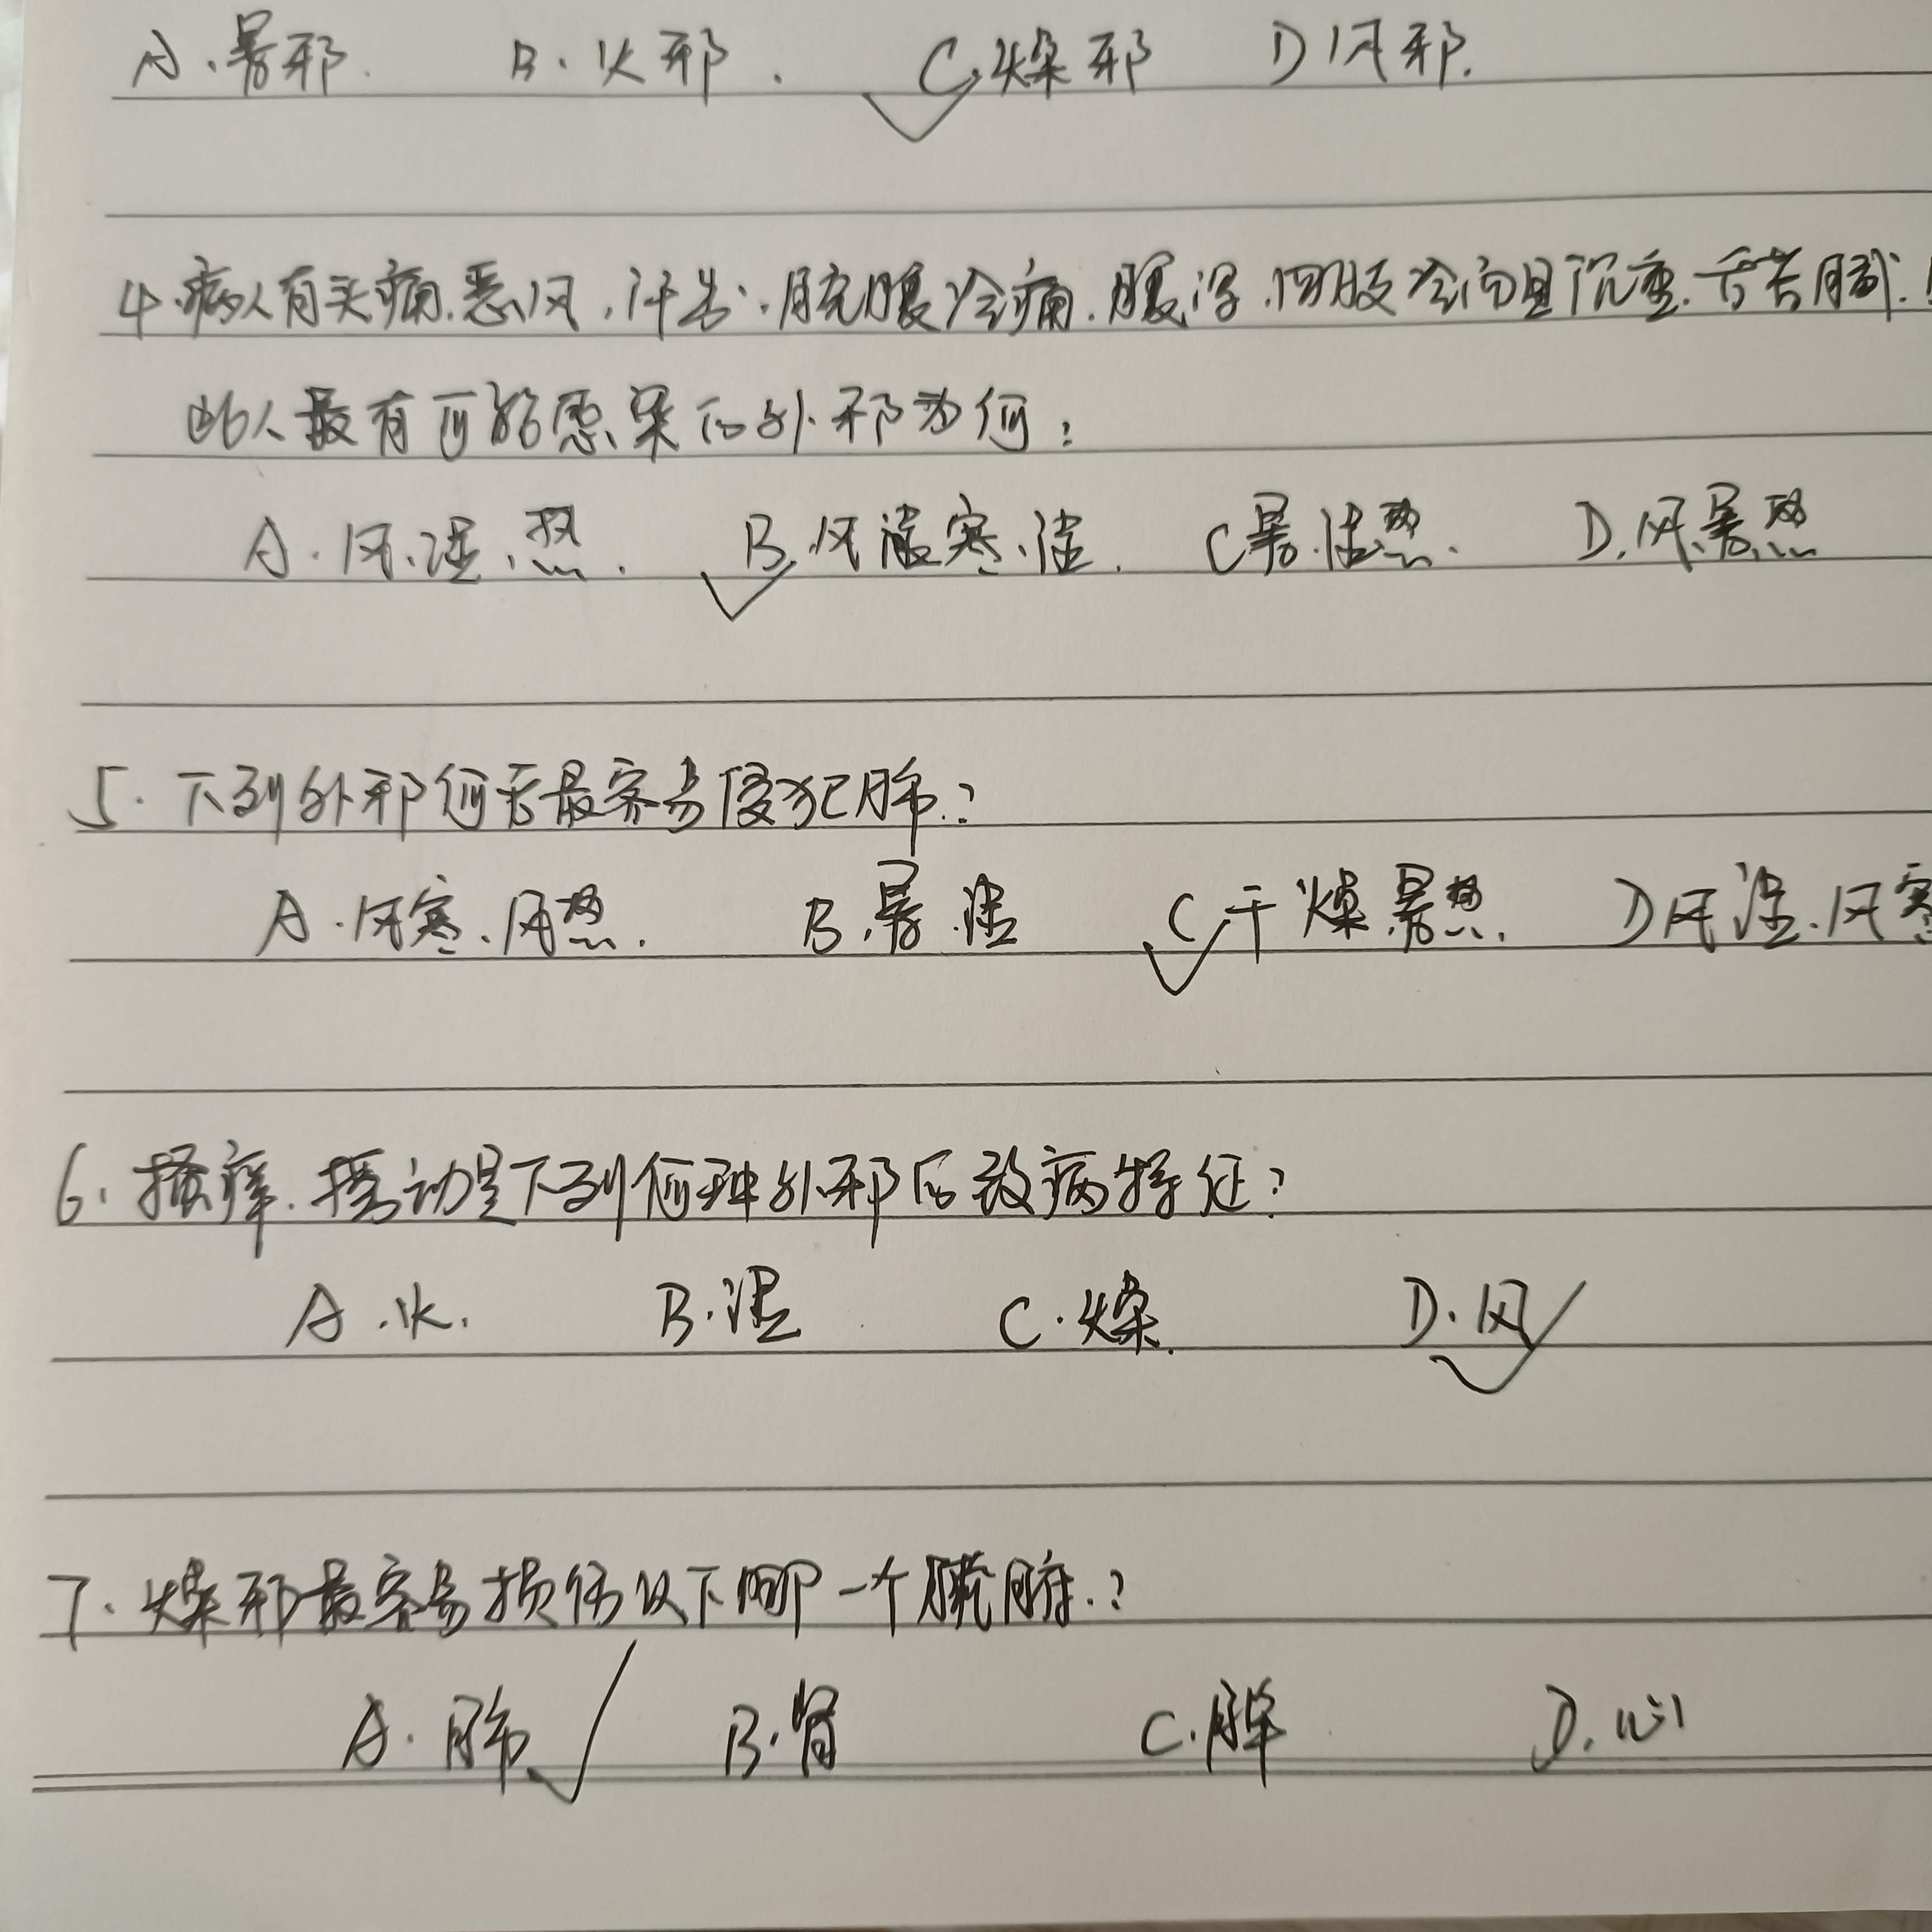 A.暑邪. B.火邪. C.燥邪 D风邪.
4.病人有头痛.恶风,汗出,脘腹冷痛.腹泻.四肢冷而且沉重.舌苔腻.
此人最有可能感染的外邪为何?
A.风.湿.热. B.风寒.湿. C暑.湿热. D.风.暑.热
5.下列外邪何者最容易侵犯肺.?
A.风寒.风热. B.暑.湿 C干燥.暑热. D风湿.风寒
6.搔痒.摇动是下列何种外邪的致病特征?
A.火. B.湿 C.燥. D.风
7.燥邪最容易损伤以下哪一个脏腑.?
A.肺 B.肾 C.脾 D.心